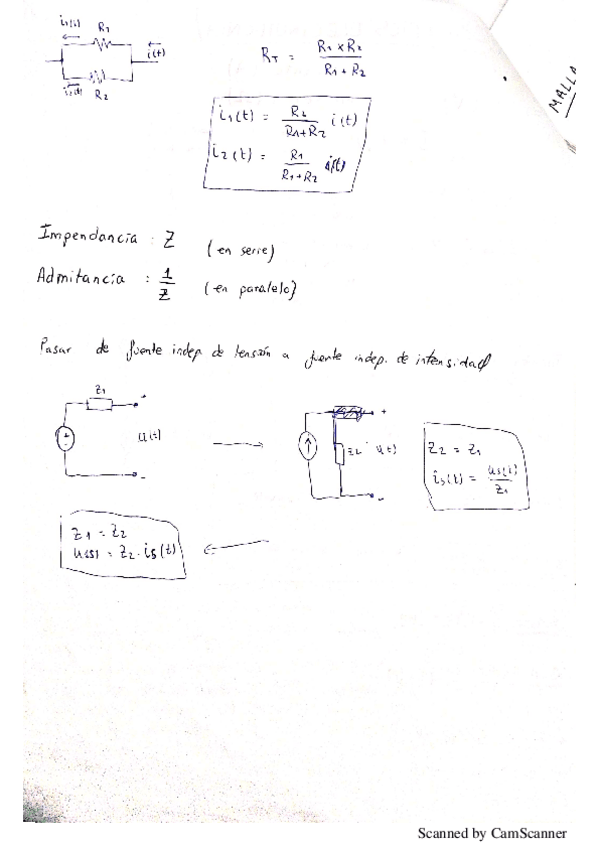 i1(t) R1
i(t)
i2(t) R2
RT = R1 x R2 / R1 + R2
MALLA
i1(t) = R2 / R1+R2 i(t)
i2(t) = R1 / R1+R2 i(t)
Impendancia : Z (en serie)
Admitancia : 1/Z (en paralelo)
Pasar de fuente indep de tensión a fuente indep. de intensidad
Z1
+
u(t)
-
+
Z2 u(t)
-
Z2 = Z1
is(t) = us(t) / Z1
Z1 = Z2
= Z2 · is(t)
Scanned by CamScanner